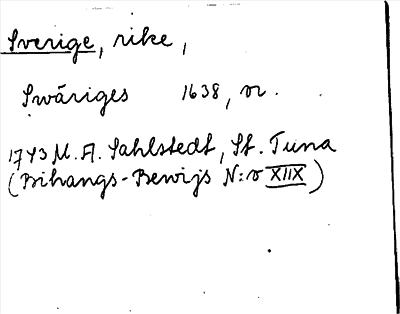 Sverige, rike,
Swäriges 1638, nr.
1743 M. A. Sahlstedt, St. Tuna
(Bihangs-Bewijs N:o XIIX)